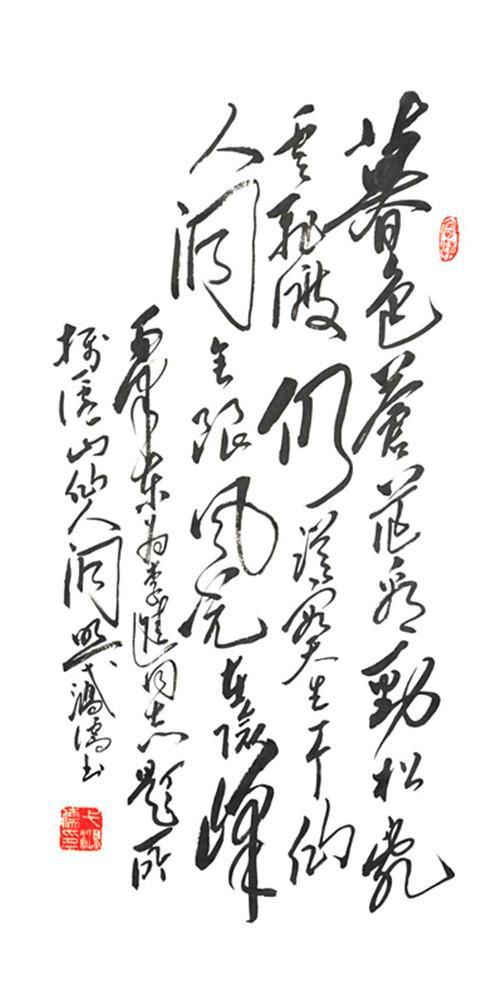 暮色蒼茫看勁松亂
雲飛渡仍從容天生一个仙
人洞無限風光在險峰
毛澤東為李進同志題所
攝廬山仙人洞照鴻儒书